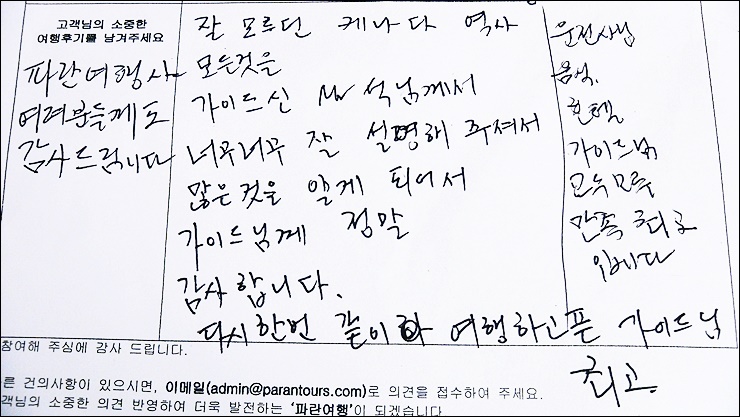 고객님의 소중한
여행후기를 남겨주세요
파란여행사
여려분들께도
감사드립니다
잘 모르던 케나다 역사
모든것을
가이드신 Mr 석님께서
너무너무 잘 설명해 주셔서
많은것을 알게 되어서
가이드님께 정말
감사합니다.
다시한번 같이 여행하고픈 가이드님
최고.
운전사님
음식.
호텔
가이드님
모두모두
만족 최고
입니다
참여해 주심에 감사 드립니다.
른 건의사항이 있으시면, 이메일(admin@parantours.com)로 의견을 접수하여 주세요.
객님의 소중한 의견 반영하여 더욱 발전하는 '파란여행'이 되겠습니다